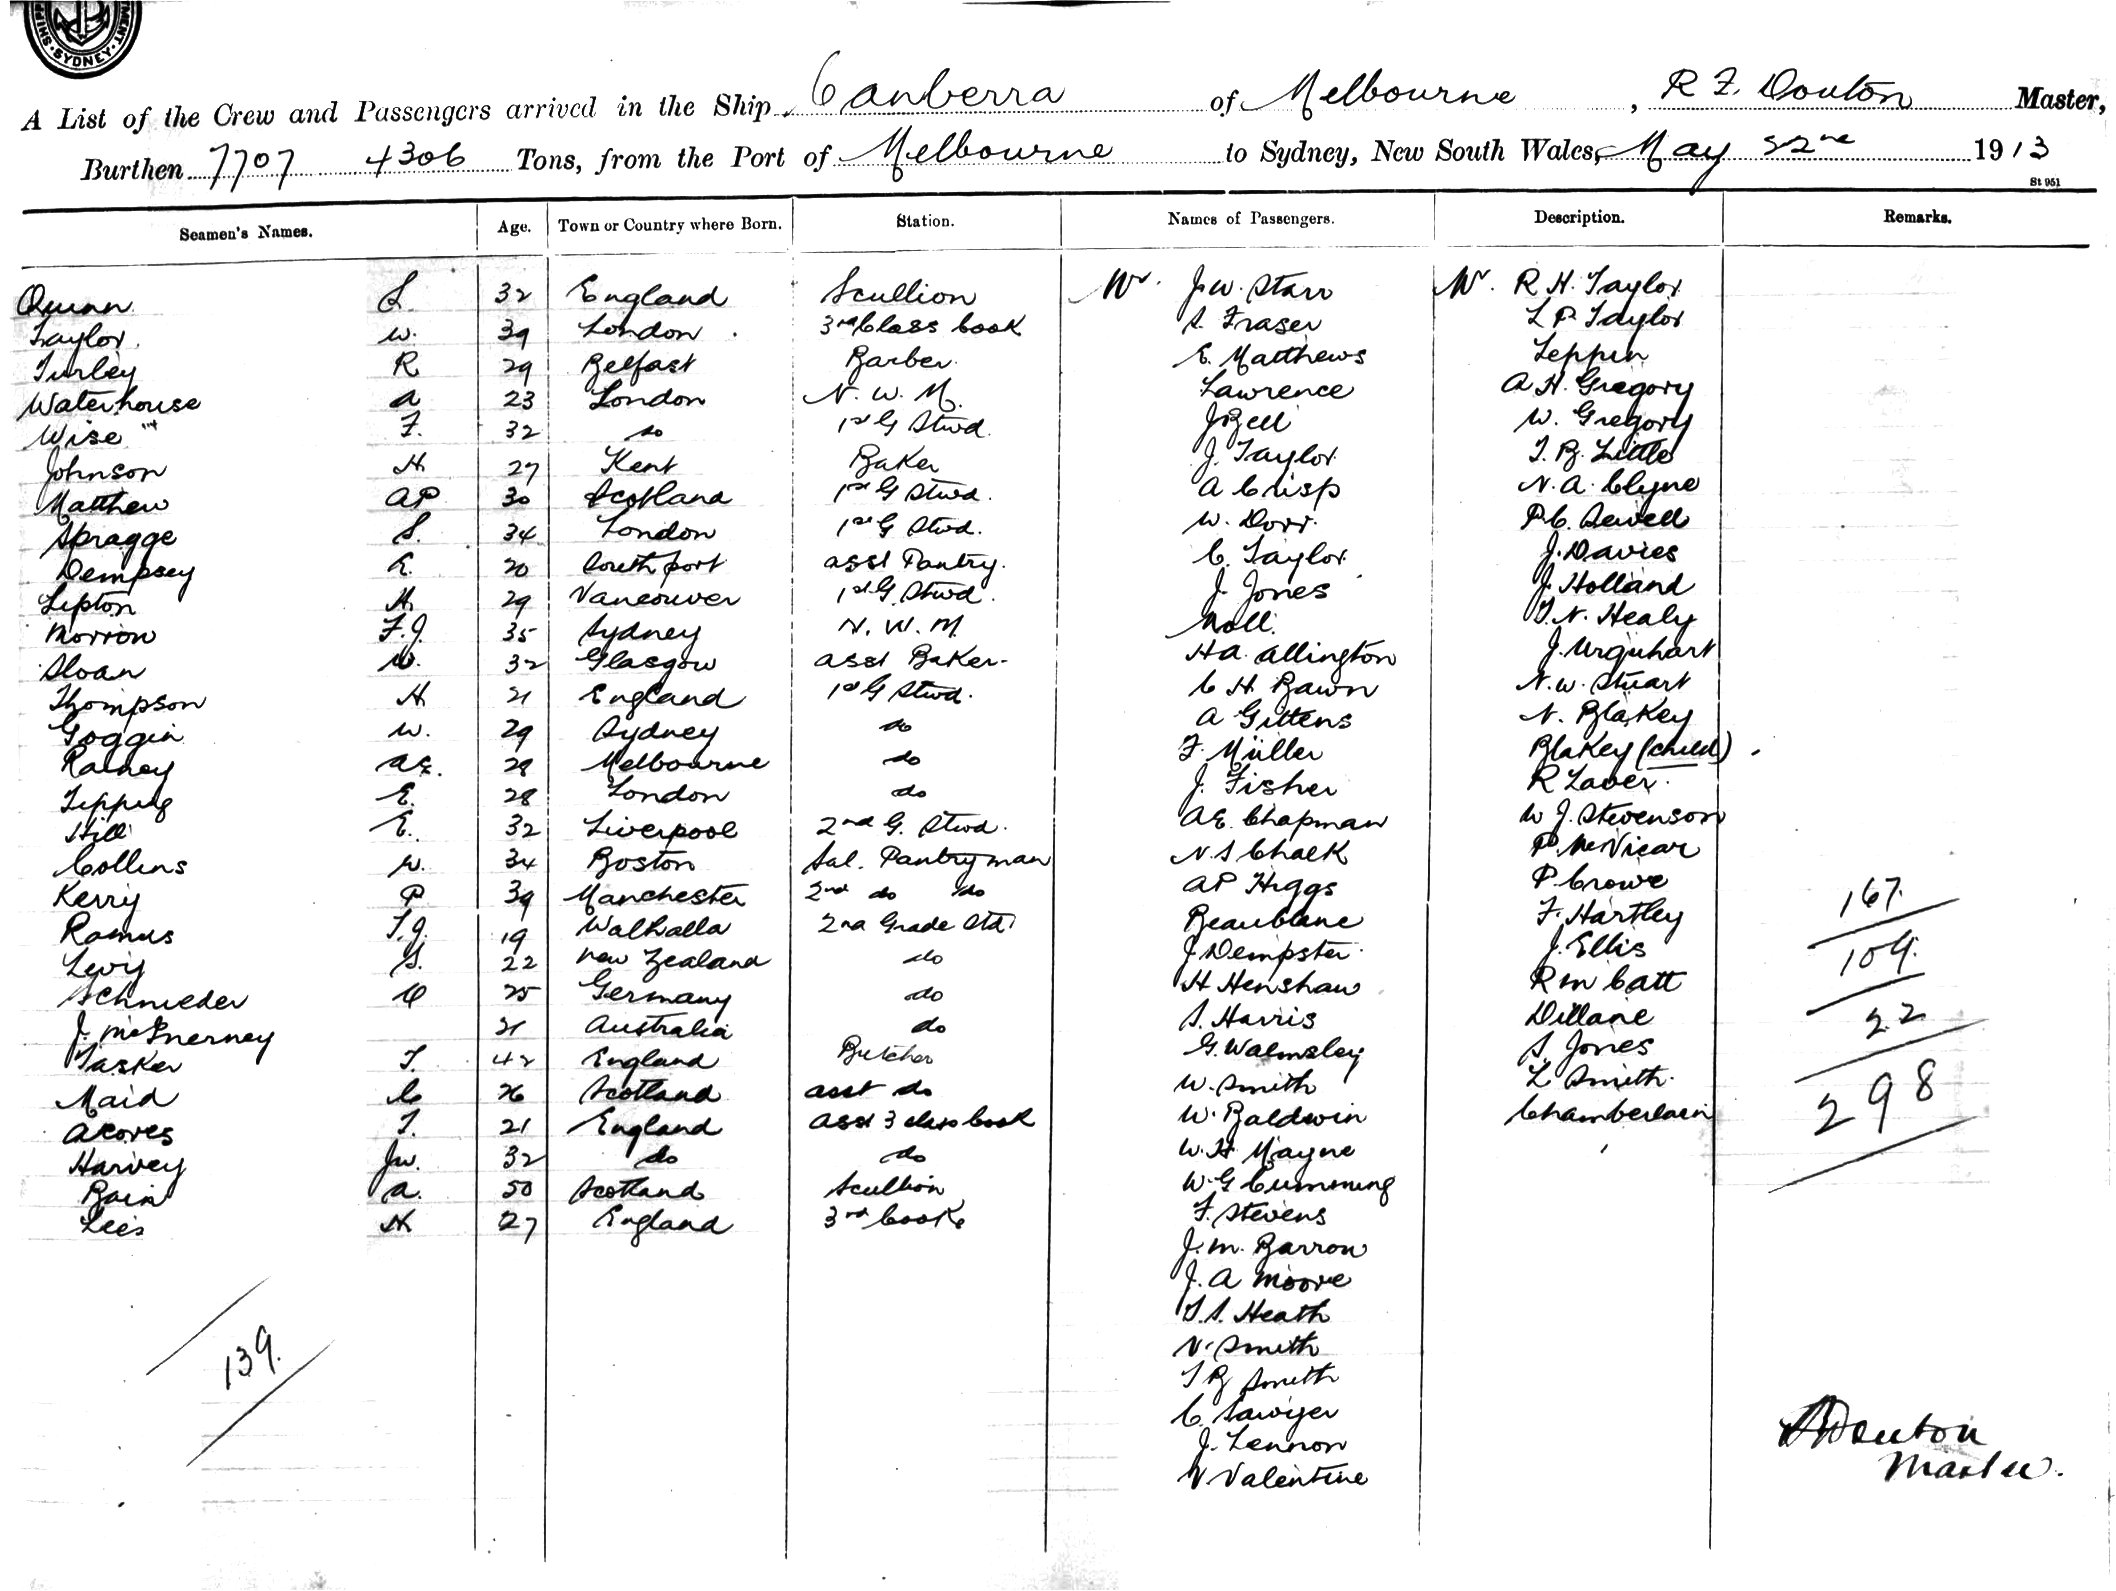 SYDNEY
A List of the Crew and Passengers arrived in the Ship Canberra of Melbourne, R F. Douton Master,
Burthen 7707 4306 Tons, from the Port of Melbourne to Sydney, New South Wales, May 22nd 1913
St 951
Seamen's Names. Age. Town or Country where Born. Station. Names of Passengers. Description. Remarks.
Quinn L. 32 England Scullion Mr. J.W. Starr Mr. R H. Taylor
Taylor. W. 39 London 3rd Class Cook S. Fraser L P. Taylor
Turley R 29 Belfast Barber. E. Matthews Leppin
Waterhouse A 23 London N. W. M. Lawrence A H. Gregory
Wise F. 32 do 1st G Stwd. J Bell W. Gregory
Johnson H 27 Kent Baker J. Taylor T. B. Little
Matthew AP 30 Scotland 1st G Stwd. A Crisp N. A. Clyne
Spragge S. 34 London 1st G Stwd. W. Dorr. P C. Sewell
Dempsey E. 20 Southport asst Pantry. C. Taylor J. Davies
Lipton H. 29 Vancouver 1st G. Stwd. J. Jones J. Holland
Morrow F.J. 35 Sydney N. W. M. Moll. T. N. Healy
Sloan W. 32 Glasgow asst Baker HA. Allington J. Urquhart
Thompson H 21 England 1st G Stwd. C H. Bawn N. W. Stuart
Goggin W. 29 Sydney do A Gittens N. Blakey
Rainey 28 Melbourne do F Müller Blakey (child)
Tipping E. 28 London do J. Fisher R Laver.
Hill E. 32 Liverpool 2nd G. Stwd. AE. Chapman W J. Stevenson
Collins W. 34 Boston Sal. Pantryman N S Chalk P. McVicar
Kerry P 39 Manchester 2nd do do AP Higgs P Crowe
Ramus T.J. 19 Walhalla 2nd Grade Std. Beaublane F. Hartley 167.
Levy S. 22 New Zealand do J. Dempster. J. Ellis 109.
Schnieder O 25 Germany do H Henshaw R M Catt
J. McInerney 21 Australia do S. Harris Dillane 22
Tasker T. 42 England Butcher G. Walmsley S. Jones
Maid C 26 Scotland asst do W. Smith L Smith. 298
Acores T. 21 England asst 3 class Cook W. Baldwin Chamberlain
Harvey JW. 32 do do W. H Mayne
Bain A. 50 Scotland Scullion W. G Cumming
Lees H 27 England 3rd Cook F. Stevens
J. M. Barron
J. A Moore
T. S. Heath
N. Smith
139. T B Smith
C. Sawyer
J. Lennon
N Valentine
Douton
Master.